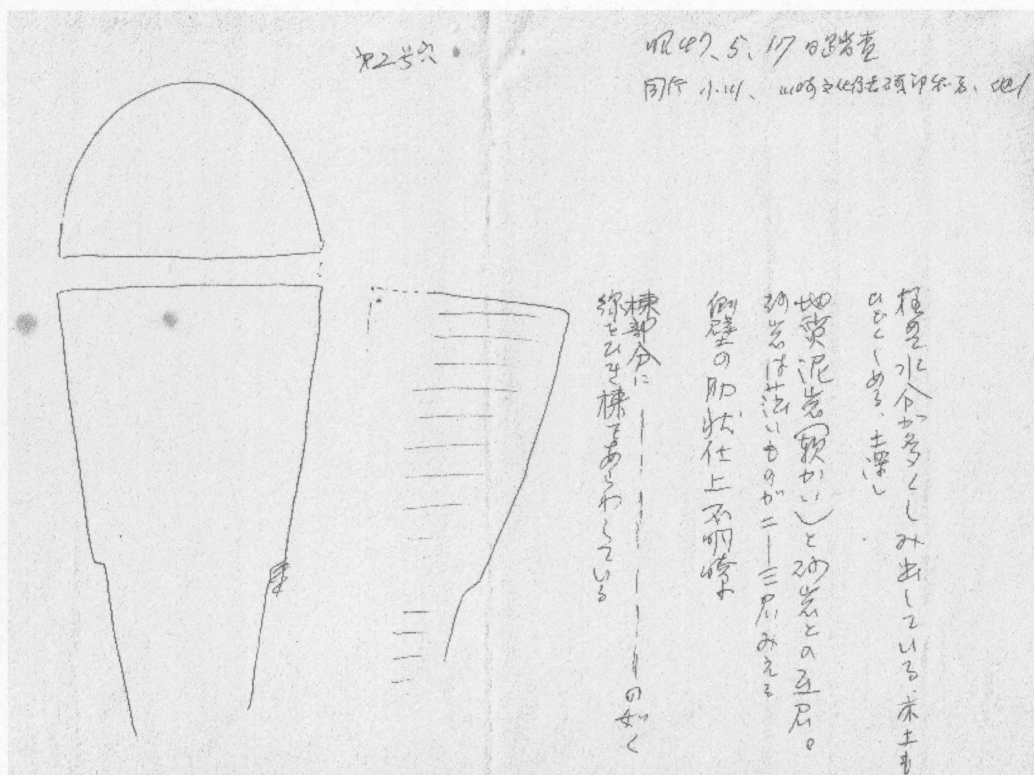 第2号穴
昭47、5、17日踏査
同行 小川、山崎文化
極めて水分が多くしみ出している、床土も
ひどくしめる、土深し
地質泥岩(軟かい)と砂岩との互層。
砂岩は薄いものが二ー三層みえる
側壁の肋状仕上不明瞭
棟部分に ー ー ー ー ー ー ー の如く
線をひき棟をあらわしている